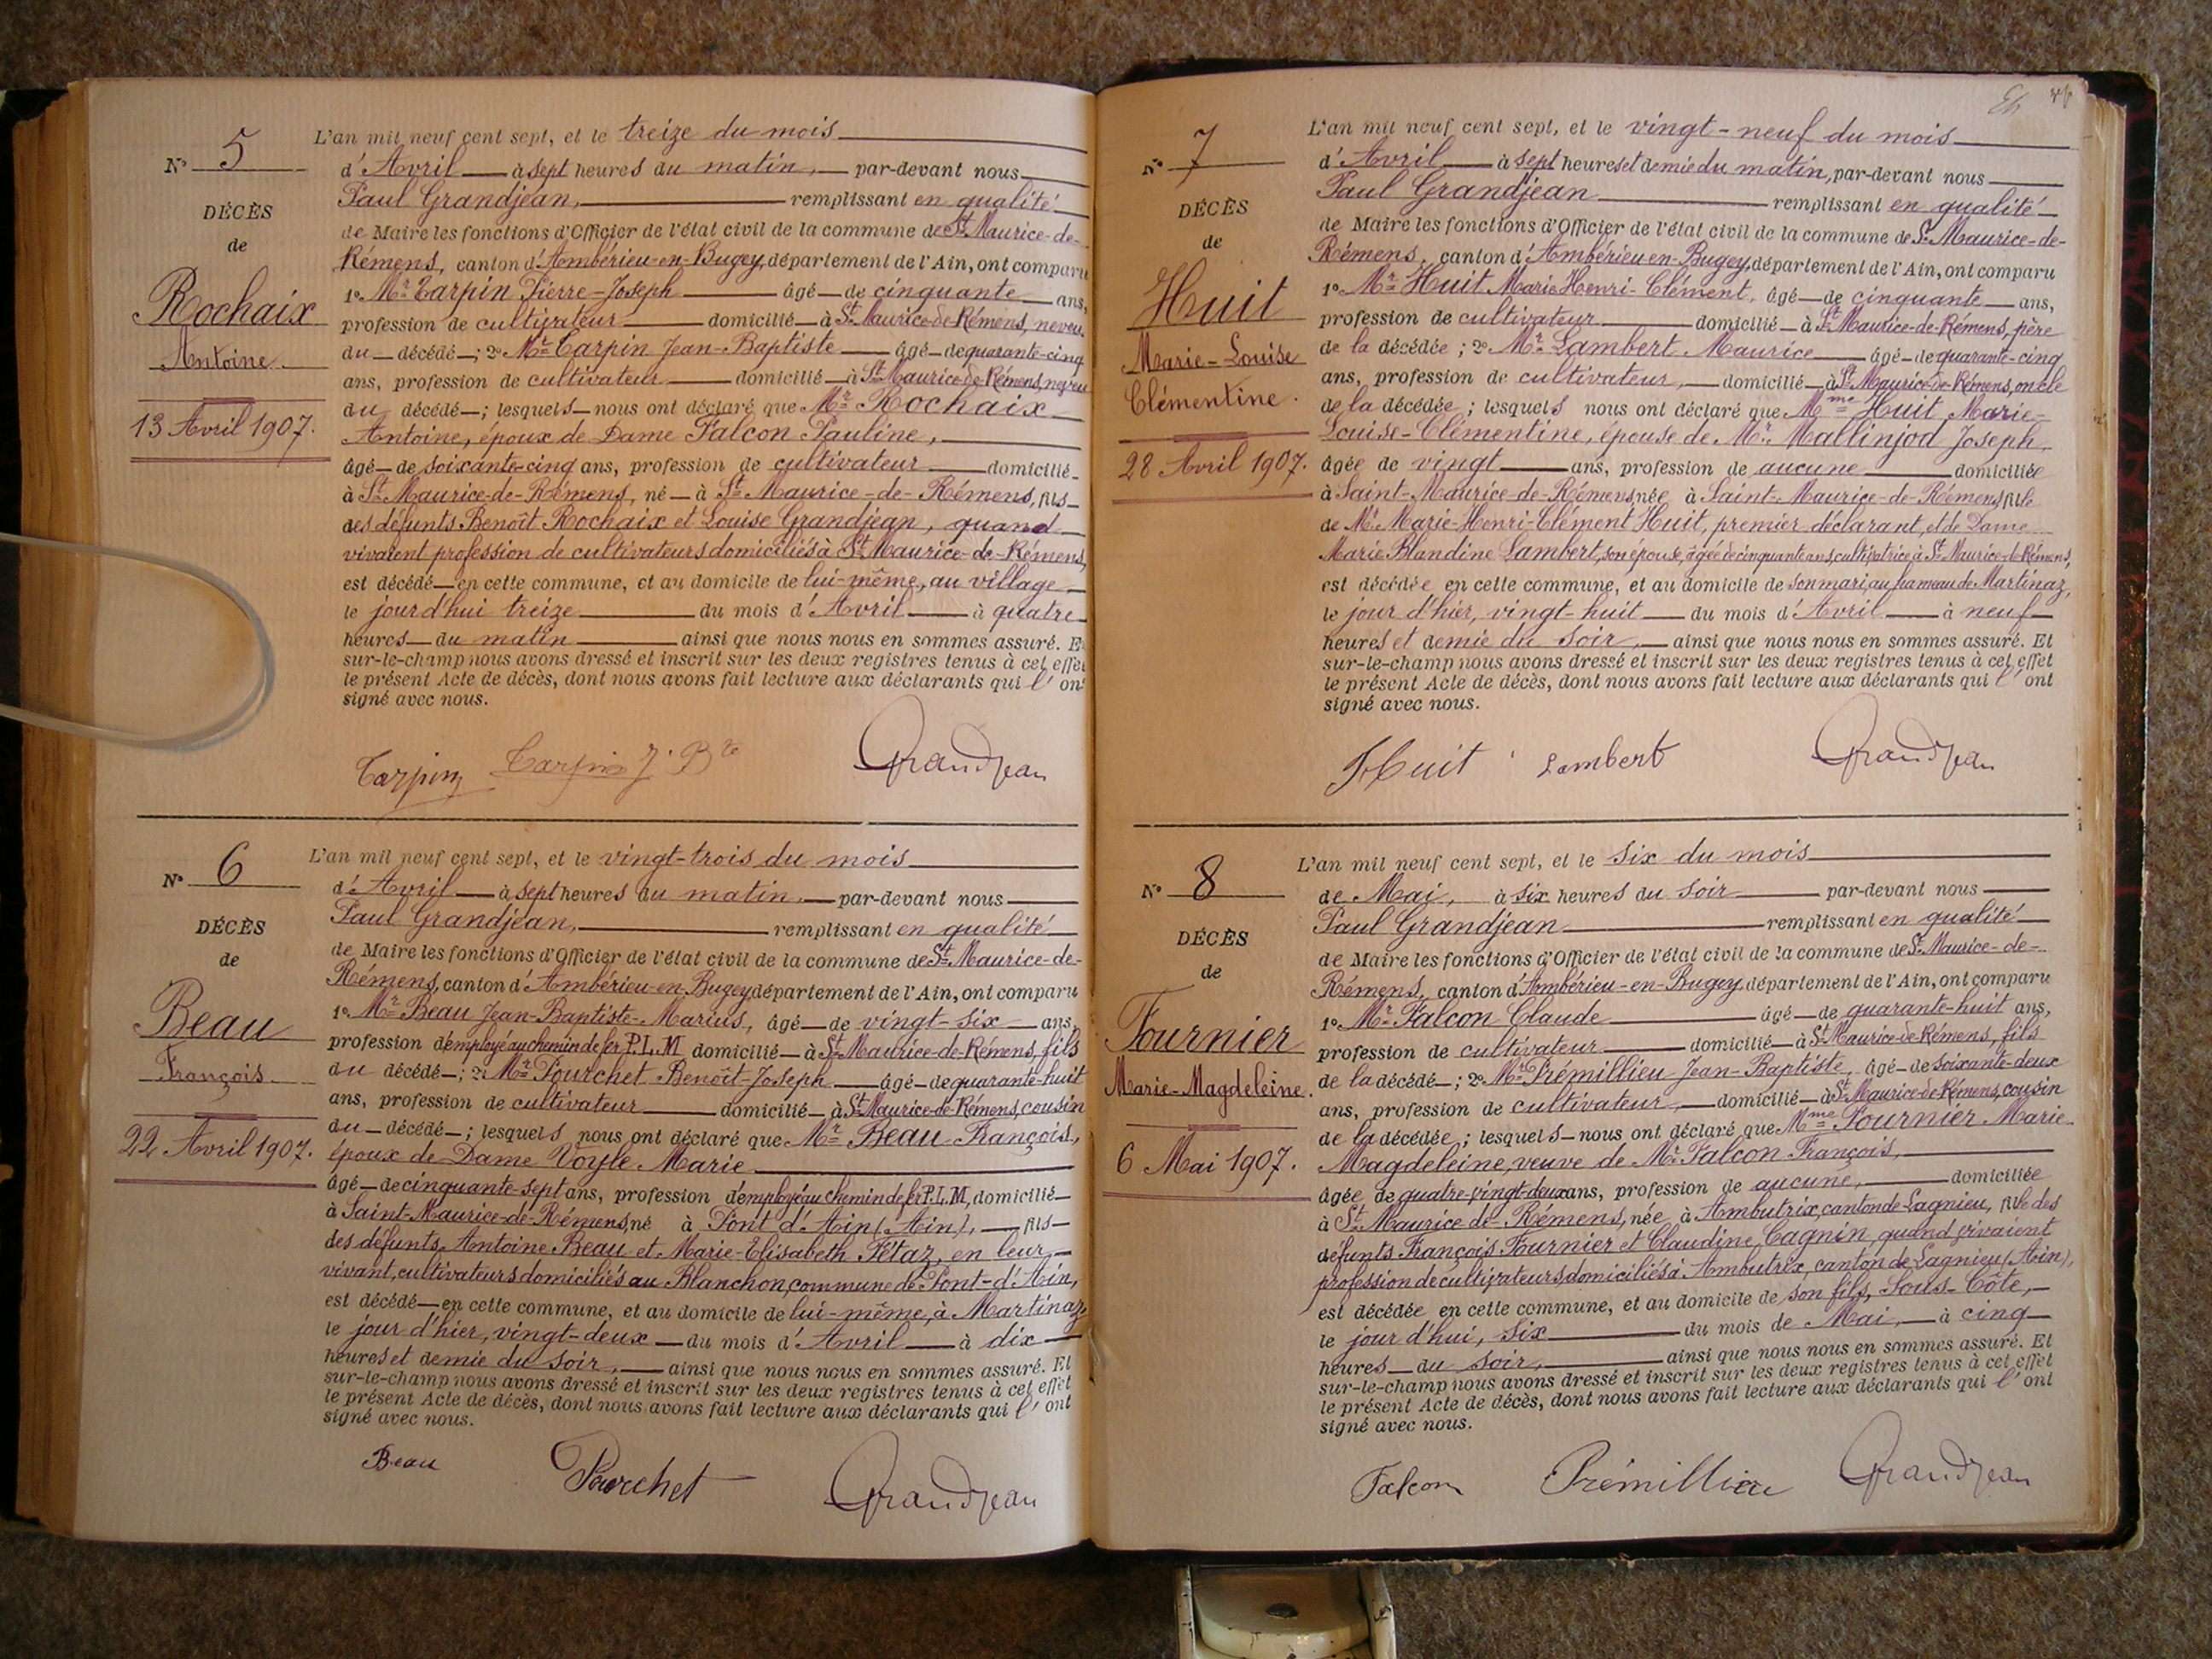 N° 5
DÉCÈS
de
Rochaix
Antoine
13 Avril 1907.
L'an mil neuf cent sept, et le treize du mois
d'Avril à sept heures du matin, par-devant nous
Paul Grandjean, remplissant en qualité
de Maire les fonctions d'Officier de l'état civil de la commune de St Maurice-de-
Rémens, canton d'Ambérieu-en-Bugey, département de l'Ain, ont comparu
1° Mr Carpin Pierre-Joseph âgé de cinquante ans,
profession de cultivateur domicilié à St Maurice-de-Rémens, neveu
du décédé; 2° Mr Carpin Jean-Baptiste âgé de quarante-cinq
ans, profession de cultivateur domicilié à St Maurice-de-Rémens, neveu
du décédé; lesquels nous ont déclaré que Mr Rochaix
Antoine, époux de Dame Falcon Pauline,
âgé de soixante-cinq ans, profession de cultivateur domicilié
à St Maurice-de-Rémens, né à St Maurice-de-Rémens, fils
des défunts Benoît Rochaix et Louise Grandjean, quand
vivaient profession de cultivateurs domiciliés à St Maurice-de-Rémens,
est décédé en cette commune, et au domicile de lui-même, au village
le jour d'hui treize du mois d'Avril à quatre
heures du matin ainsi que nous nous en sommes assuré. Et
sur-le-champ nous avons dressé et inscrit sur les deux registres tenus à cet effet
le présent Acte de décès, dont nous avons fait lecture aux déclarants qui l'ont
signé avec nous.
Carpin Carpin J. Bte Grandjean
N° 6
DÉCÈS
de
Beau
François
22 Avril 1907.
L'an mil neuf cent sept, et le vingt-trois du mois
d'Avril à sept heures du matin, par-devant nous
Paul Grandjean, remplissant en qualité
de Maire les fonctions d'Officier de l'état civil de la commune de St Maurice-de-
Rémens, canton d'Ambérieu-en-Bugey département de l'Ain, ont comparu
1° Mr Beau Jean-Baptiste-Marius, âgé de vingt-six ans,
profession d'employé au chemin de fer P.L.M domicilié à St Maurice-de-Rémens, fils
du décédé; 2° Mr Pourchet Benoît-Joseph âgé de quarante-huit
ans, profession de cultivateur domicilié à St Maurice-de-Rémens, cousin
du décédé; lesquels nous ont déclaré que Mr Beau François,
époux de Dame Voyle Marie
âgé de cinquante-sept ans, profession d'employé au chemin de fer P.L.M, domicilié
à Saint-Maurice-de-Rémens, né à Pont d'Ain (Ain), fils
des défunts Antoine Beau et Marie-Elisabeth Pétaz, en leur
vivant, cultivateurs domiciliés au Blanchon, commune de Pont-d'Ain,
est décédé en cette commune, et au domicile de lui-même, à Martinaz
le jour d'hier, vingt-deux du mois d'Avril à dix
heures et demie du soir, ainsi que nous nous en sommes assuré. Et
sur-le-champ nous avons dressé et inscrit sur les deux registres tenus à cet effet
le présent Acte de décès, dont nous avons fait lecture aux déclarants qui l'ont
signé avec nous.
Beau Pourchet Grandjean
N° 7
DÉCÈS
de
Huit
Marie-Louise
Clémentine.
28 Avril 1907.
L'an mil neuf cent sept, et le vingt-neuf du mois
d'Avril à sept heures et demie du matin, par-devant nous
Paul Grandjean remplissant en qualité
de Maire les fonctions d'Officier de l'état civil de la commune de St Maurice-de-
Rémens, canton d'Ambérieu-en-Bugey, département de l'Ain, ont comparu
1° Mr Huit Marie Henri-Clément, âgé de cinquante ans,
profession de cultivateur domicilié à St Maurice-de-Rémens, père
de la décédée; 2° Mr Lambert Maurice âgé de quarante-cinq
ans, profession de cultivateur, domicilié à St Maurice-de-Rémens, oncle
de la décédée; lesquels nous ont déclaré que Mme Huit Marie-
Louise-Clémentine, épouse de Mr Mallinjod Joseph,
âgée de vingt ans, profession de aucune domiciliée
à Saint-Maurice-de-Rémens, née à Saint-Maurice-de-Rémens, fille
de Mr Marie-Henri-Clément Huit, premier déclarant, et de Dame
Marie Blandine Lambert, son épouse, âgée de cinquante ans, cultivatrice à St Maurice-de-Rémens,
est décédée en cette commune, et au domicile de son mari, au hameau de Martinaz,
le jour d'hier, vingt-huit du mois d'Avril à neuf
heures et demie du soir, ainsi que nous nous en sommes assuré. Et
sur-le-champ nous avons dressé et inscrit sur les deux registres tenus à cet effet
le présent Acte de décès, dont nous avons fait lecture aux déclarants qui l'ont
signé avec nous.
Huit Lambert Grandjean
N° 8
DÉCÈS
de
Fournier
Marie-Magdeleine.
6 Mai 1907.
L'an mil neuf cent sept, et le six du mois
de Mai, à six heures du soir par-devant nous
Paul Grandjean remplissant en qualité
de Maire les fonctions d'Officier de l'état civil de la commune de St Maurice-de-
Rémens, canton d'Ambérieu-en-Bugey, département de l'Ain, ont comparu
1° Mr Falcon Claude âgé de quarante-huit ans,
profession de cultivateur domicilié à St Maurice-de-Rémens, fils
de la décédé; 2° Mr Prémillieu Jean-Baptiste, âgé de soixante-deux
ans, profession de cultivateur, domicilié à St Maurice-de-Rémens, cousin
de la décédée; lesquels nous ont déclaré que Mme Fournier Marie-
Magdeleine, veuve de Mr Falcon François,
âgée de quatre-vingt-deux ans, profession de aucune, domiciliée
à St Maurice de-Rémens, née à Ambutrix, canton de Lagnieu, fille des
défunts François Fournier et Claudine Cagnin, quand vivaient
profession de cultivateurs, domiciliés à Ambutrix, canton de Lagnieu (Ain),
est décédée en cette commune, et au domicile de son fils, Sous-Côte,
le jour d'hui, six du mois de Mai, à cinq
heures du soir, ainsi que nous nous en sommes assuré. Et
sur-le-champ nous avons dressé et inscrit sur les deux registres tenus à cet effet
le présent Acte de décès, dont nous avons fait lecture aux déclarants qui l'ont
signé avec nous.
Falcon Prémillieu Grandjean